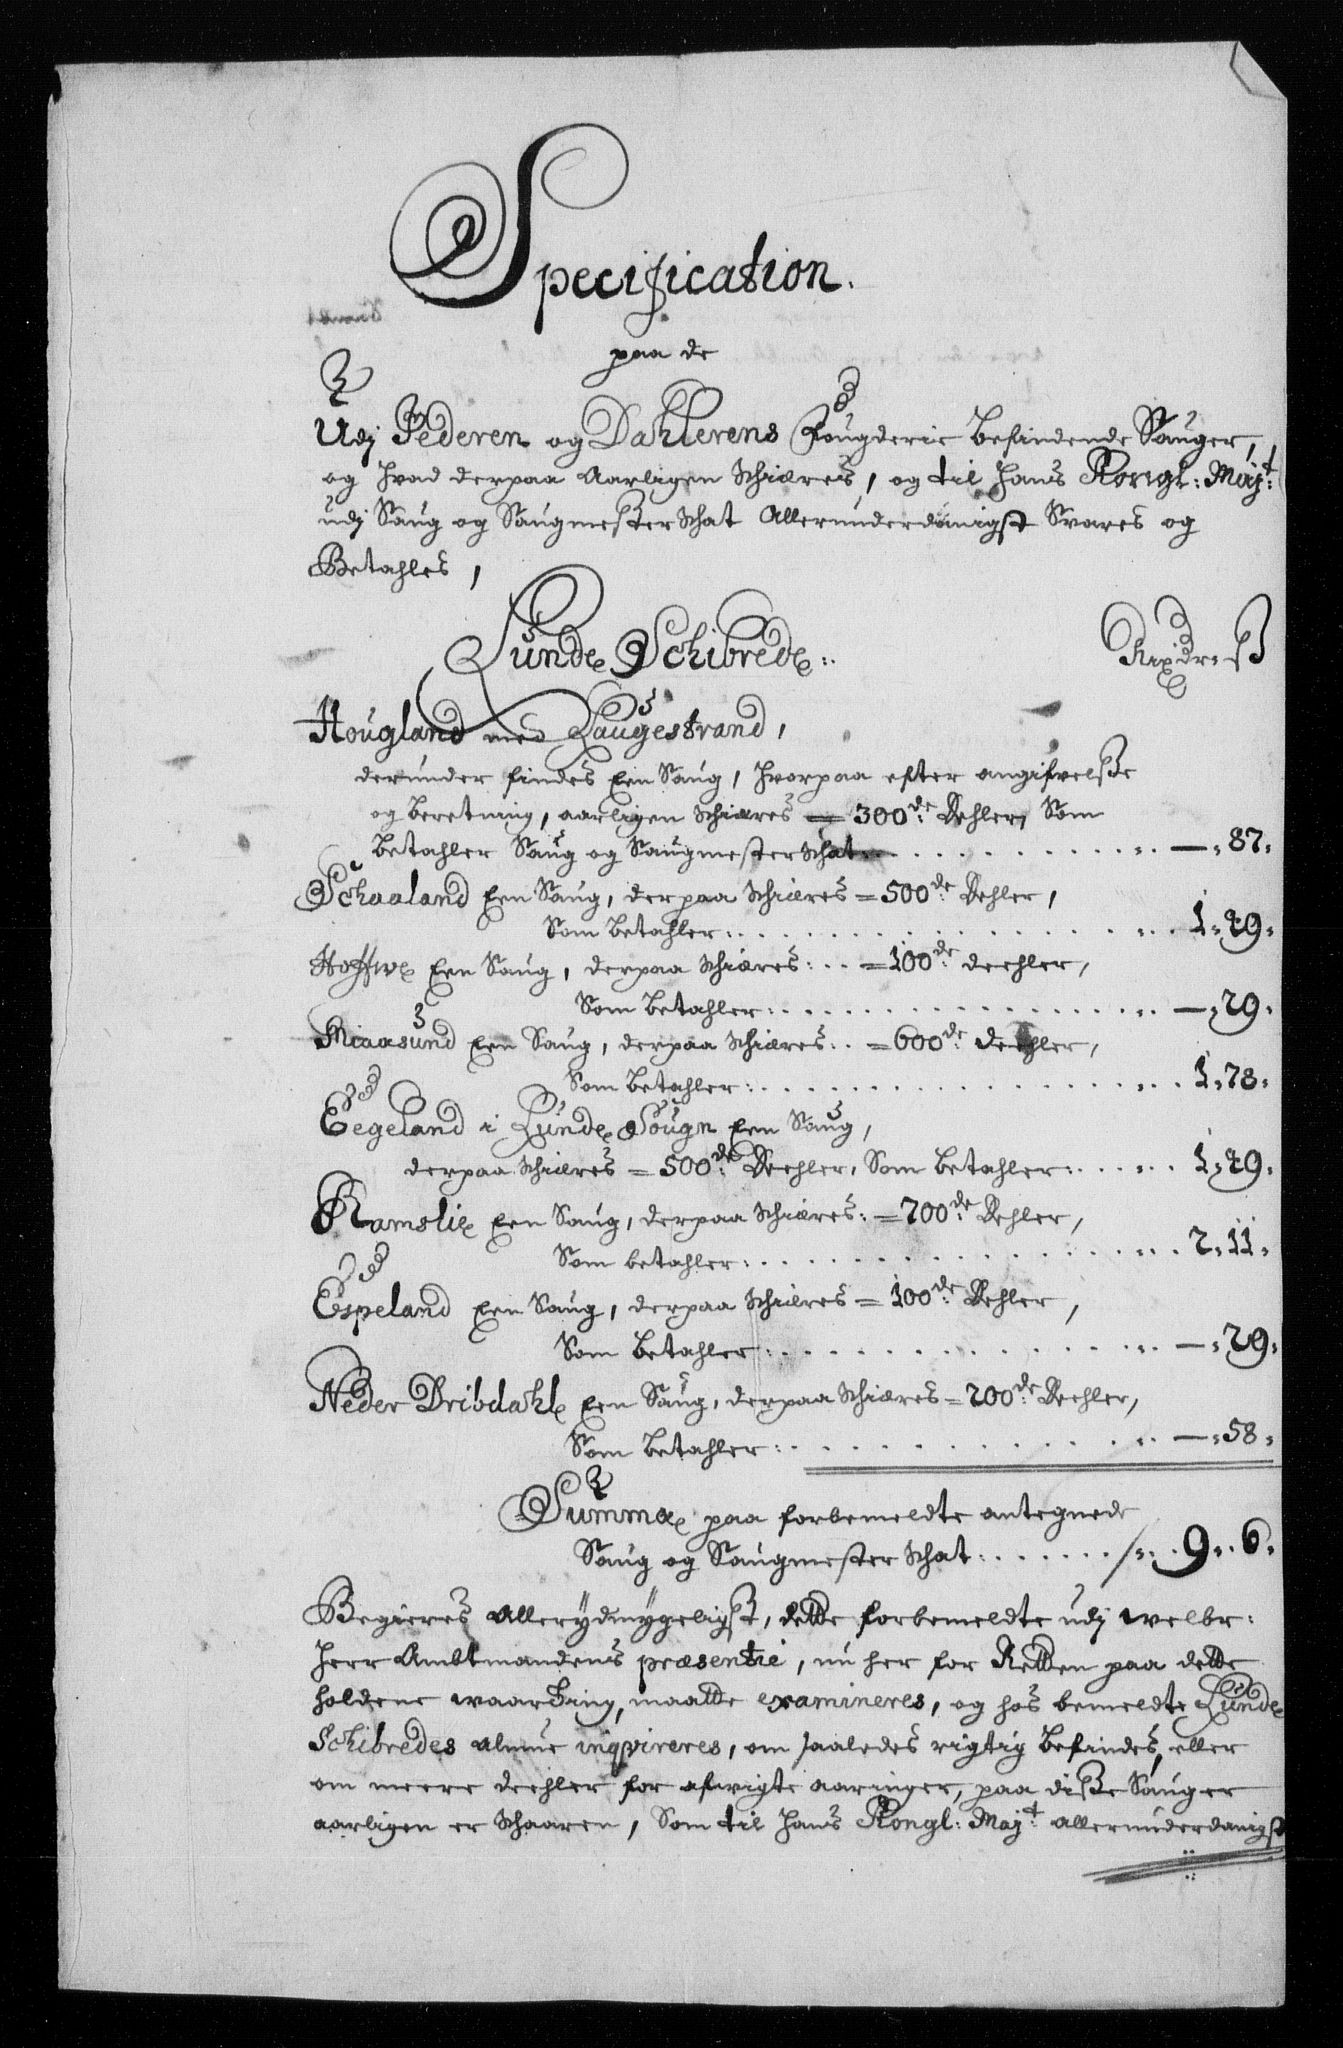 Specification.
paa de
Udj Jederen og Dahlerens Fougderie befindende Sauger,
og hvad derpaa Aarligen Schiæres, og til Hans Kongl: Maj:t
udj Saug og Saugmester Schat Allerunderdanigst Svares og
Betahles,
Lunde Schibrede:
Rixdr: ß
Hougland med Haugestrand,
derunder findes Een Saug, hvorpaa efter angifvelse
og beretning, aarligen Schiæres = 300de: Dehler, Som
betahler Saug og Saugmester Schat: — 87.
Schaaland Een Saug, derpaa Schiæres = 500de: Dehler,
Som betahler: 1. 49.
Hoffwe Een Saug, derpaa Schiæres: = 100de: deehler,
Som betahler: — 29.
Miaasund Een Saug, derpaa Schiæres: = 600de: deehler,
Som betahler: 1. 78.
Eegeland i Lunde Sougn Een Saug,
derpaa Schiæres = 500de: Deehler, Som betahler: 1. 49.
Ramslie Een Saug, derpaa Schiæres: = 700de: Dehler,
Som betahler: 2. 11.
Espeland Een Saug, derpaa Schiæres = 100de: Dehler,
Som betahler: — 29.
Neder Dribdahl Een Saug, derpaa Schiæres = 200de: Deehler,
Som betahler: — 58.
Summa paa forbemeldte antegnede
Saug og Saugmester Schat: 9. 6.
Begieres Allerydmygeligst, dette forbemeldte udj welbr:
Herr Ambtmandens præsentie, nu her for Retten paa dette
holdene waarting, maatte examineres, og hos bemeldte Lunde
Schibredes Almue inqvireres, om saaledes rigtig befindes, eller
om meere deehler for afvigte aaringer, paa diße Sauger
aarligen er Schaaren, Som til Hans Kongl: Maj:t allerunderdanigst